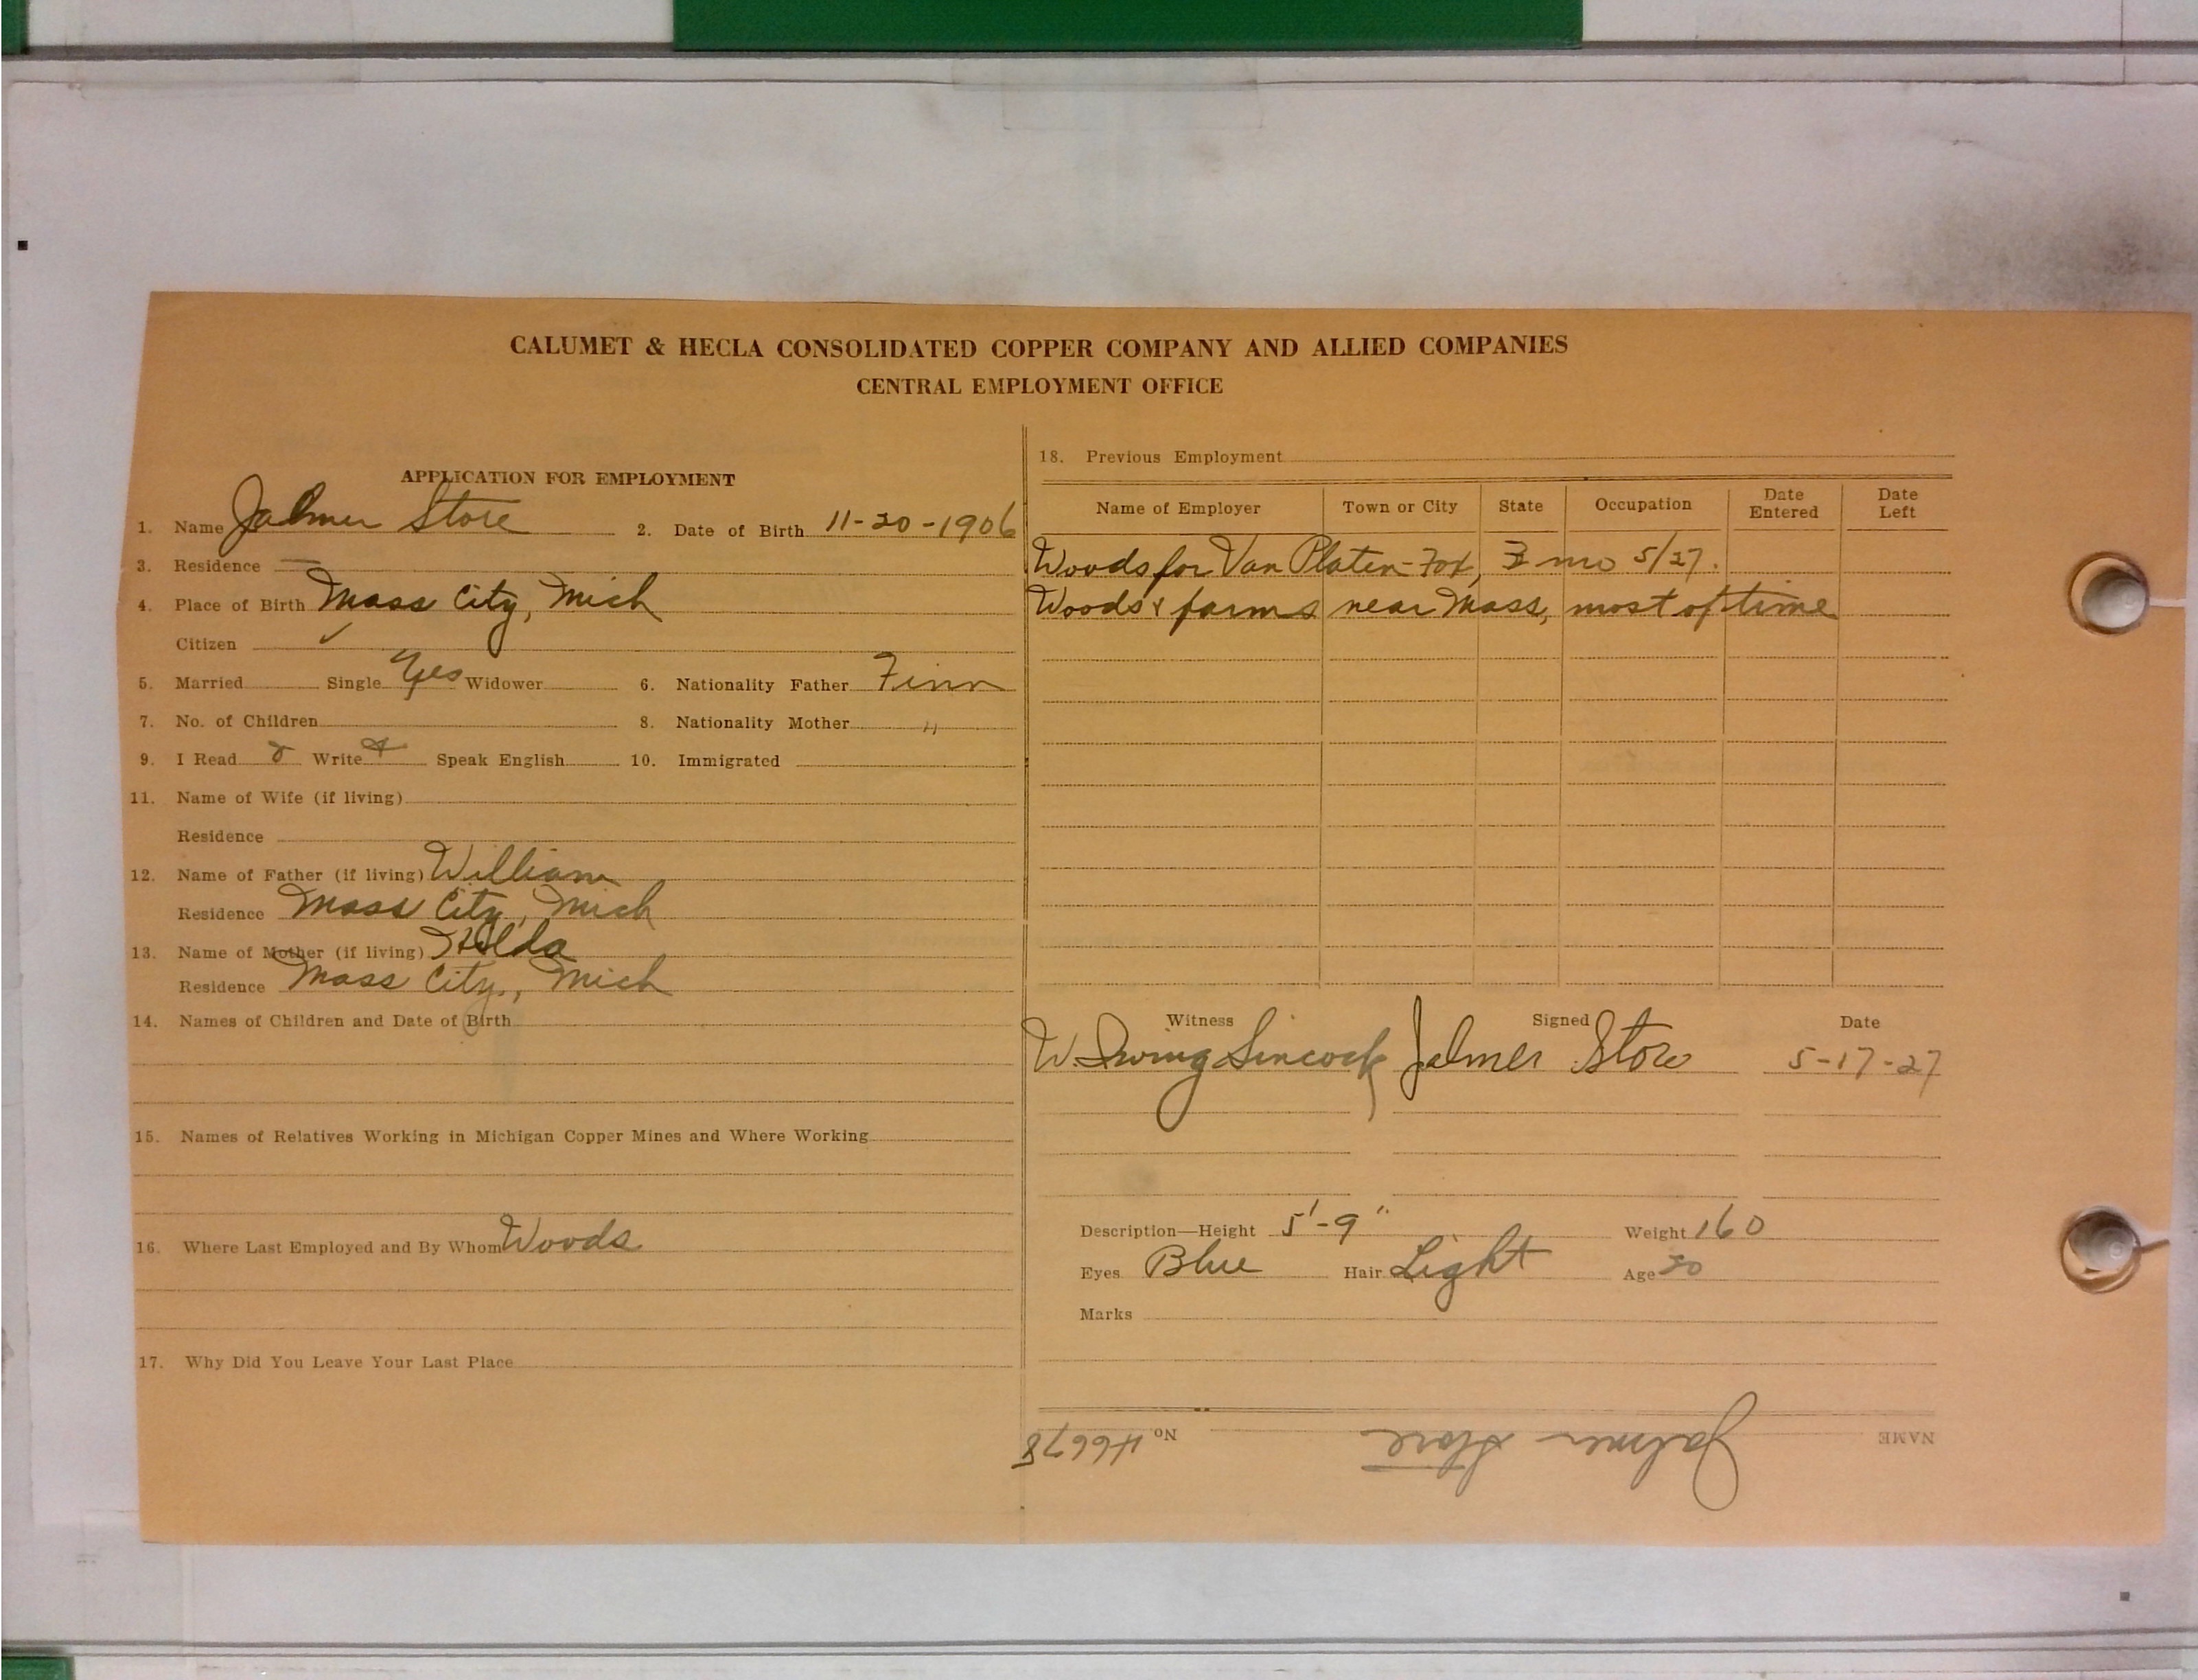 CALUMET & HECLA CONSOLIDATED COPPER COMPANY AND ALLIED COMPANIES
CENTRAL EMPLOYMENT OFFICE
APPLICATION FOR EMPLOYMENT
1. Name Jalmer Store 2. Date of Birth 11-20-1906
3. Residence
4. Place of Birth Mass City, Mich
Citizen ✓
5. Married Single Yes Widower 6. Nationality Father Finn
7. No. of Children 8. Nationality Mother "
9. I Read & Write & Speak English 10. Immigrated
11. Name of Wife (if living)
Residence
12. Name of Father (if living) William
Residence Mass City, Mich
13. Name of Mother (if living) Hilda
Residence Mass City, Mich
14. Names of Children and Date of Birth
15. Names of Relatives Working in Michigan Copper Mines and Where Working
16. Where Last Employed and By Whom Woods
17. Why Did You Leave Your Last Place
18. Previous Employment
Name of Employer Town or City State Occupation Date Entered Date Left
Woods for Van Platen-Fox, mo 5/27.
Woods & farms near Mass, most of time
Witness Signed Date
W. Irving Sincock Jalmer Store 5-17-27
Description—Height 5'-9" Weight 160
Eyes Blue Hair Light Age 20
Marks
NAME Jalmer Store No. 46678